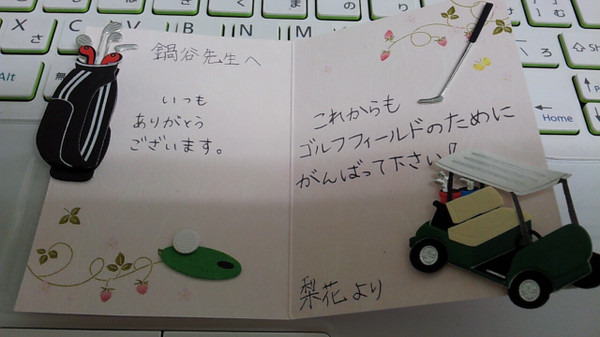 鍋谷先生へ
いつも
ありがとう
ございます。
これからも
ゴルフフィールドのために
がんばって下さい!
梨花より
X
C
V
B
N
M
さ
そ
Alt
無
む
ろ
Home